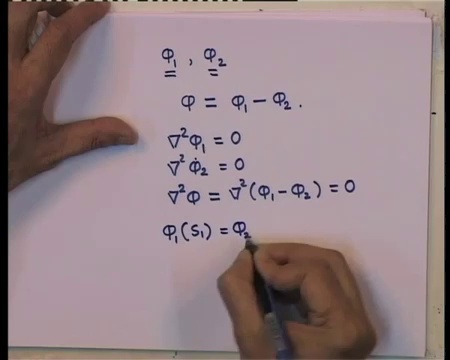 φ₁ , φ₂
φ = φ₁ − φ₂ .
∇²φ₁ = 0
∇²φ₂ = 0
∇²φ = ∇²(φ₁ − φ₂) = 0
φ₁(S₁) = φ₂